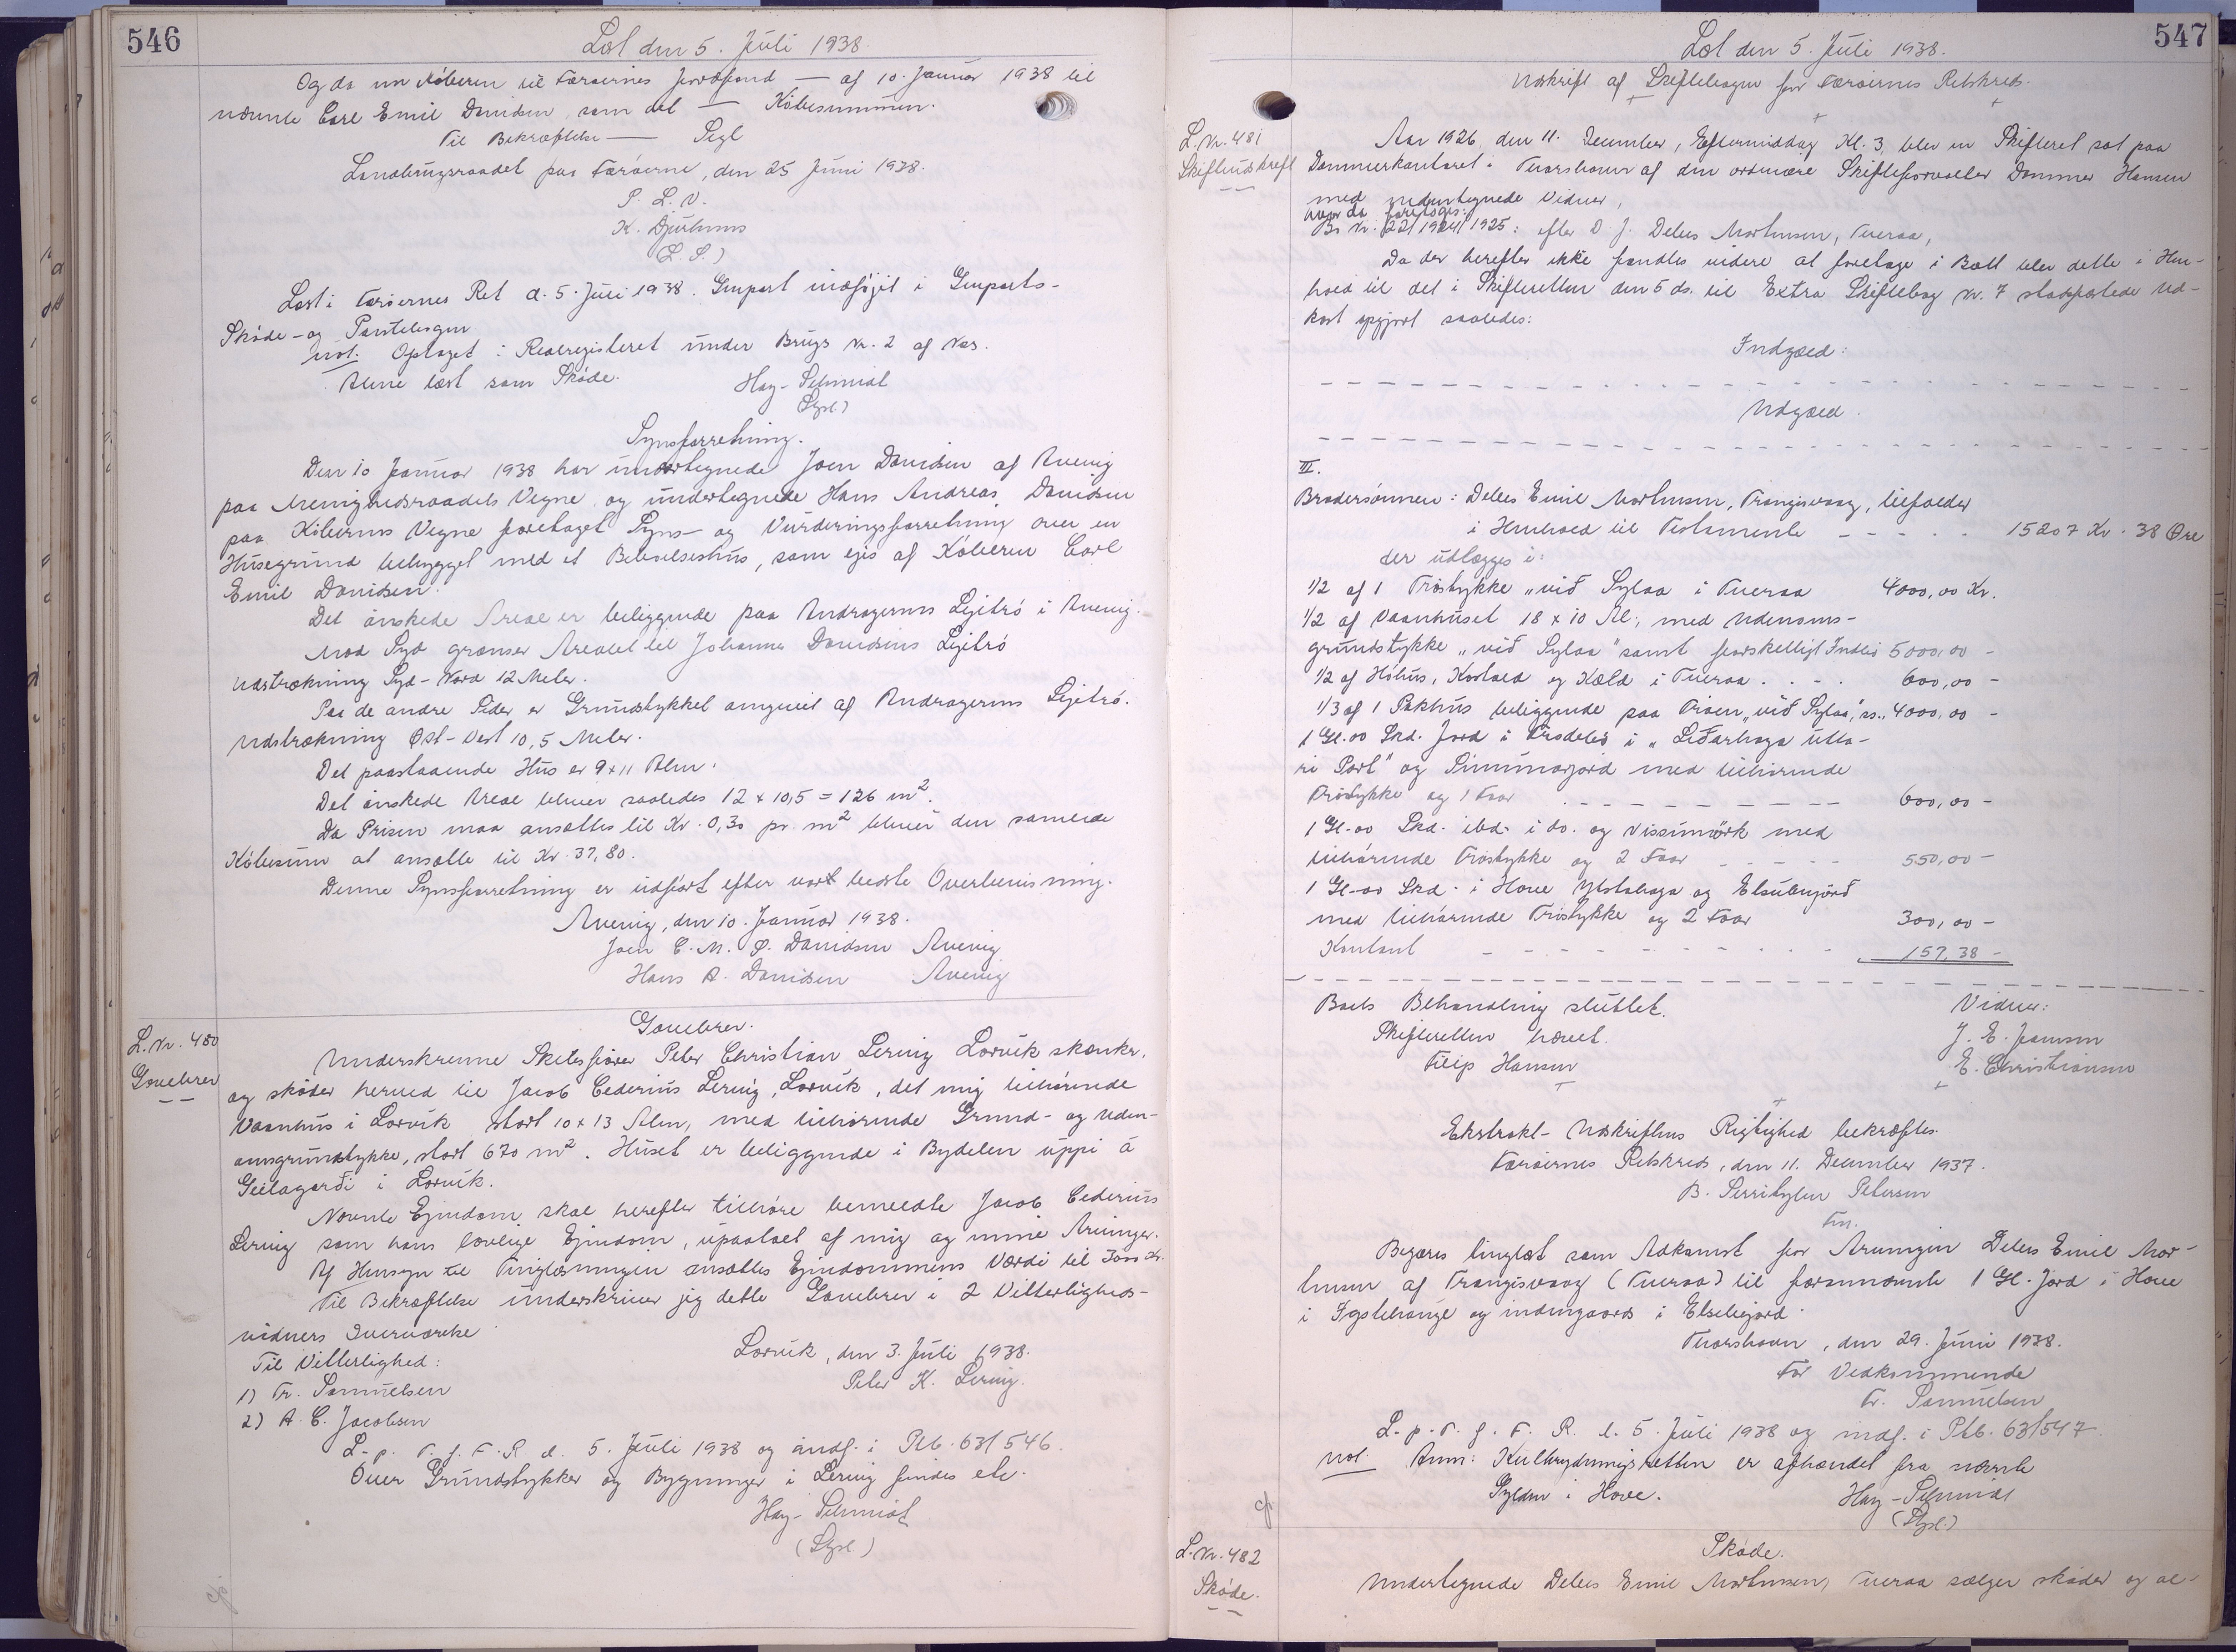 546
Læst den 5. Juli 1938.
Og da nu Køberen til Færøernes Jordefond — af 10. Januar 1938 til
nævnte Carl Emil Davidsen, som det — Købesummen.
Til Bekræftelse — Segl
Landbrugsraadet paa Færøerne, den 25 Juni 1938.
P. L. V.
K. Djurhuus
(L. S.)
Læst i Færøernes Ret d. 5. Juli 1938. Genpart indføjet i Genparts-
Skøde- og Pantebogen
Not. Optaget i Realregisteret under Brugs Nr. 2 af Næs.
Alene læst som Skøde.
Hay-Schmidt
(Sysl.)
Synsforretning.
Den 10 Januar 1938 har undertegnede Joen Davidsen af Avevig
paa Menighedsraadets Vegne og undertegnede Hans Andreas Davidsen
paa Køberens Vegne foretaget Syns- og Vurderingsforretning over en
Husegrund bebygget med et Beboelseshus, som ejes af Køberen Carl
Emil Davidsen.
Det ønskede Areal er beliggende paa Andragerens Lejetrø i Avevig.
Mod Syd grænser Arealet til Johannes Davidsens Lejetrø
Udstrækning Syd-Nord 12 Meter.
Paa de andre Sider er Grundstykket omgivet af Andragerens Lejetrø.
Udstrækning Øst-Vest 10,5 Meter.
Det paastaaende Hus er 9 x 11 Alen.
Det ønskede Areal bliver saaledes 12 x 10,5 = 126 m².
Da Prisen maa ansættes til Kr. 0,30 pr. m² bliver den samlede
Købesum at ansætte til Kr. 37,80.
Denne Synsforretning er udført efter vort bedste Overbevisning.
Avevig, den 10. Januar 1938.
Joen C. M. S. Davidsen Avevig
Hans A. Davidsen Avevig
L. Nr. 480
Gavebrev
Gavebrev.
Underskrevne Skibsfører Peter Christian Lervig Lorvik skænker
og skøder herved til Jacob Cederius Lervig, Lorvik, det mig tilhørende
Vaanhus i Lorvik stort 10 x 13 Alen, med tilhørende Grund- og Uden-
omsgrundstykke, stort 670 m². Huset er beliggende i Bydelen uppi á
Geilagarði i Lorvik.
Nævnte Ejendom skal herefter tilhøre bemeldte Jacob Cederius
Lervig som hans lovlige Ejendom, upaatalt af mig og mine Arvinger.
Af Hensyn til Tinglæsningen ansættes Ejendommens Værdi til 3000 Kr.
Til Bekræftelse underskriver jeg dette Gavebrev i 2 Vitterligheds-
vidners Overværelse
Lorvik, den 3. Juli 1938.
Til Vitterlighed:
Peter K. Lervig.
1) Fr. Samuelsen
2) A. C. Jacobsen
L. p. T. f. F. R. d. 5. Juli 1938 og indf. i Ptb. 63/546.
Over Grundstykker og Bygninger i Lervig findes etc.
Hay-Schmidt
(Sysl.)
547
Læst den 5. Juli 1938.
Udskrift af Skiftebogen for Færøernes Retskreds.
L. Nr. 481
Skifteudskrift
Aar 1926, den 11. December, Eftermiddag Kl. 3, blev en Skifteret sat paa
Dommerkontoret i Thorshavn af den ordinære Skifteforvalter Dommer Hansen
med undertegnede Vidner,
hvor da foretoges:
Bo Nr. 22/1924/1925: efter D. J. Debes Mortensen, Tveraa,
Da der herefter ikke fandtes videre at foretage i Boet blev dette i Hen-
hold til det i Skifteretten den 5 ds. til Extra Skiftebog Nr. 7 stadfæstede Ud-
kast opgjort saaledes:
Indgæld:
Udgæld.
III.
Brodersønnen: Debes Emil Mortensen, Trangisvaag, tilfalder
i Henhold til Testamente 15207 Kr. 38 Øre
der udlægges i:
1/2 af 1 Trøstykke „við Sylaa i Tveraa 4000,00 Kr.
1/2 af Vaanhuset 18 x 10 Al., med Udenoms-
grundstykke „við Sylaa" samt forskelligt Indbo 5000,00 -
1/2 af Høhus, Kostald og Kæld i Tveraa 600,00 -
1/3 af 1 Pakhus beliggende paa Øren „við Sylaa", ss. 4000,00 -
1 Gl. 00 Skd. Jord i i „Liðarhaga utta-
ri Part" og med tilhørende
Trøstykke og 1 Faar 600,00 -
1 Gl-00 Skd. ibd. i do. og Vissumørk med
tilhørende Trøstykke og 2 Faar 550,00 -
1 Gl-00 Skd. i Hove Ytstahaga og Elsubujørð
med tilhørende Trøstykke og 2 Faar 300,00 -
Kontant 157,38 -
Boets Behandling sluttet.
Vidner:
Skifteretten hævet.
J. E. Jensen
Filip Hansen
E. Christiansen
Ekstrakt-Udskriftens Rigtighed bekræftes.
Færøernes Retskreds, den 11. December 1937.
B. Serritzlew Petersen
Fm.
Begæres tinglæst som Adkomst for Arvingen Debes Emil Mor-
tensen af Trangisvaag (Tveraa) til forannævnte 1 Gl. Jord i Hove
i Ygstehauge og indengaards i Elsebejord.
Thorshavn, den 29. Juni 1938.
For Vedkommende
Fr. Samuelsen
L. p. T. f. F. R. d. 5. Juli 1938 og indf. i Ptb. 63/547.
Not. Anm: Kulbrydningsretten er afhændet fra nævnte
Gylden i Hove.
Hay-Schmidt
(Sysl.)
L. Nr. 482
Skøde.
Skøde.
Undertegnede Debes Emil Mortensen, Tveraa sælger skøder og al-